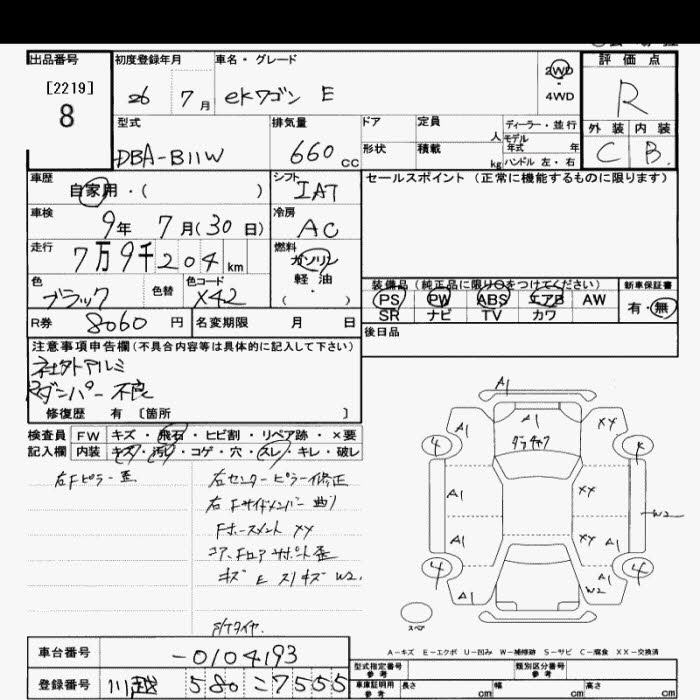 出品番号
[2219]
8
初度登録年月
26 7月
車名・グレード
eKワゴン E
2WD
・
4WD
評価点
R
外装 内装
C B
型式
DBA-B11W
排気量
660cc
ドア
形状
定員
人
積載
kg
ディーラー・並行
モデル年式 年
ハンドル 左・右
車歴
自家用・( )
シフト
IAT
セールスポイント(正常に機能するものに限ります)
車検
9年 7月(30日)
冷房
AC
走行
7万9千204km
燃料
ガソリン
軽油
・
( )
色
ブラック
色替
色コード
X42
装備品(純正品に限り○をつけてください)
PS PW ABS エアB AW
SR ナビ TV カワ
新車保証書
有・無
R券 8060円
名変期限 月 日
後日品
注意事項申告欄(不具合内容等は具体的に記入して下さい)
社外アルミ
Rダンパー不良
修復歴 有 〔箇所 〕
検査員記入欄
FW キズ・飛石・ヒビ割・リペア跡・×要
内装 キズ・汚レ・コゲ・穴・スレ・キレ・破レ
右Fピラー歪
右センターピラー修正
右Fサイドメンバー曲り
Fホースメント XY
コア、Fロアサポート歪
キズ E スリキズ W2.
A1
A1
A1
XY
4
A1
XY
W2
A1
XY
A1
4
4
W2
A1
A1
スペア
A-キズ E-エクボ U-凹み W-補修跡 S-サビ C-腐食 XX-交換済
車台番号
-0104193
登録番号
川越 580 こ 7555
型式指定番号
参考
類別区分番号
参考
車庫証明用
参考
長さ cm 幅 cm 高さ cm